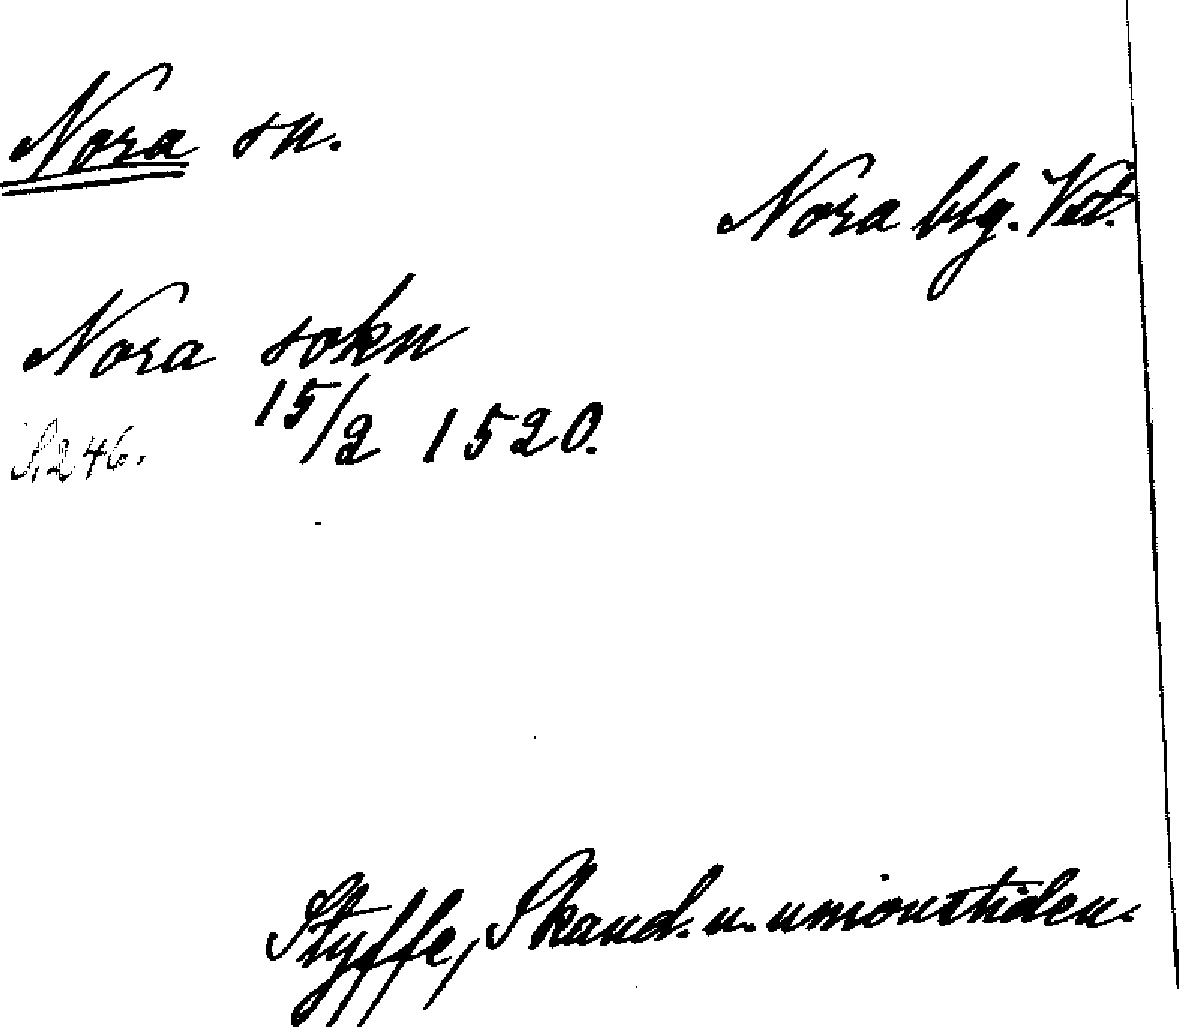 Nora sn.
Nora blg. Vstm.
Nora sokn
15/2 1520.
S. 246.
Styffe, Skand. u. unionstiden.